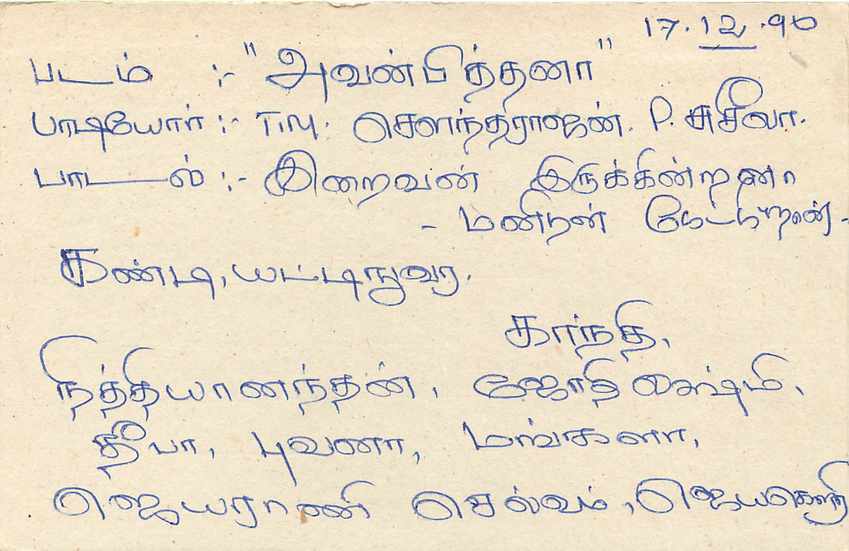 17.12.90
படம் :- "அவன்பித்தனா"
பாடியோர் :- T.M. சௌந்தரராஜன். P. சுசீலா.
பாடல் :- இறைவன் இருக்கின்றானா
- மனிதன் கேட்கிறான் -
கண்டி, யட்டிநுவர.
காந்தி,
நித்தியானந்தன், ஜோதிலக்ஷ்மி,
தீபா, புவனா, மங்களா,
ஜெயராணி செல்வம், ஜெயகௌரி